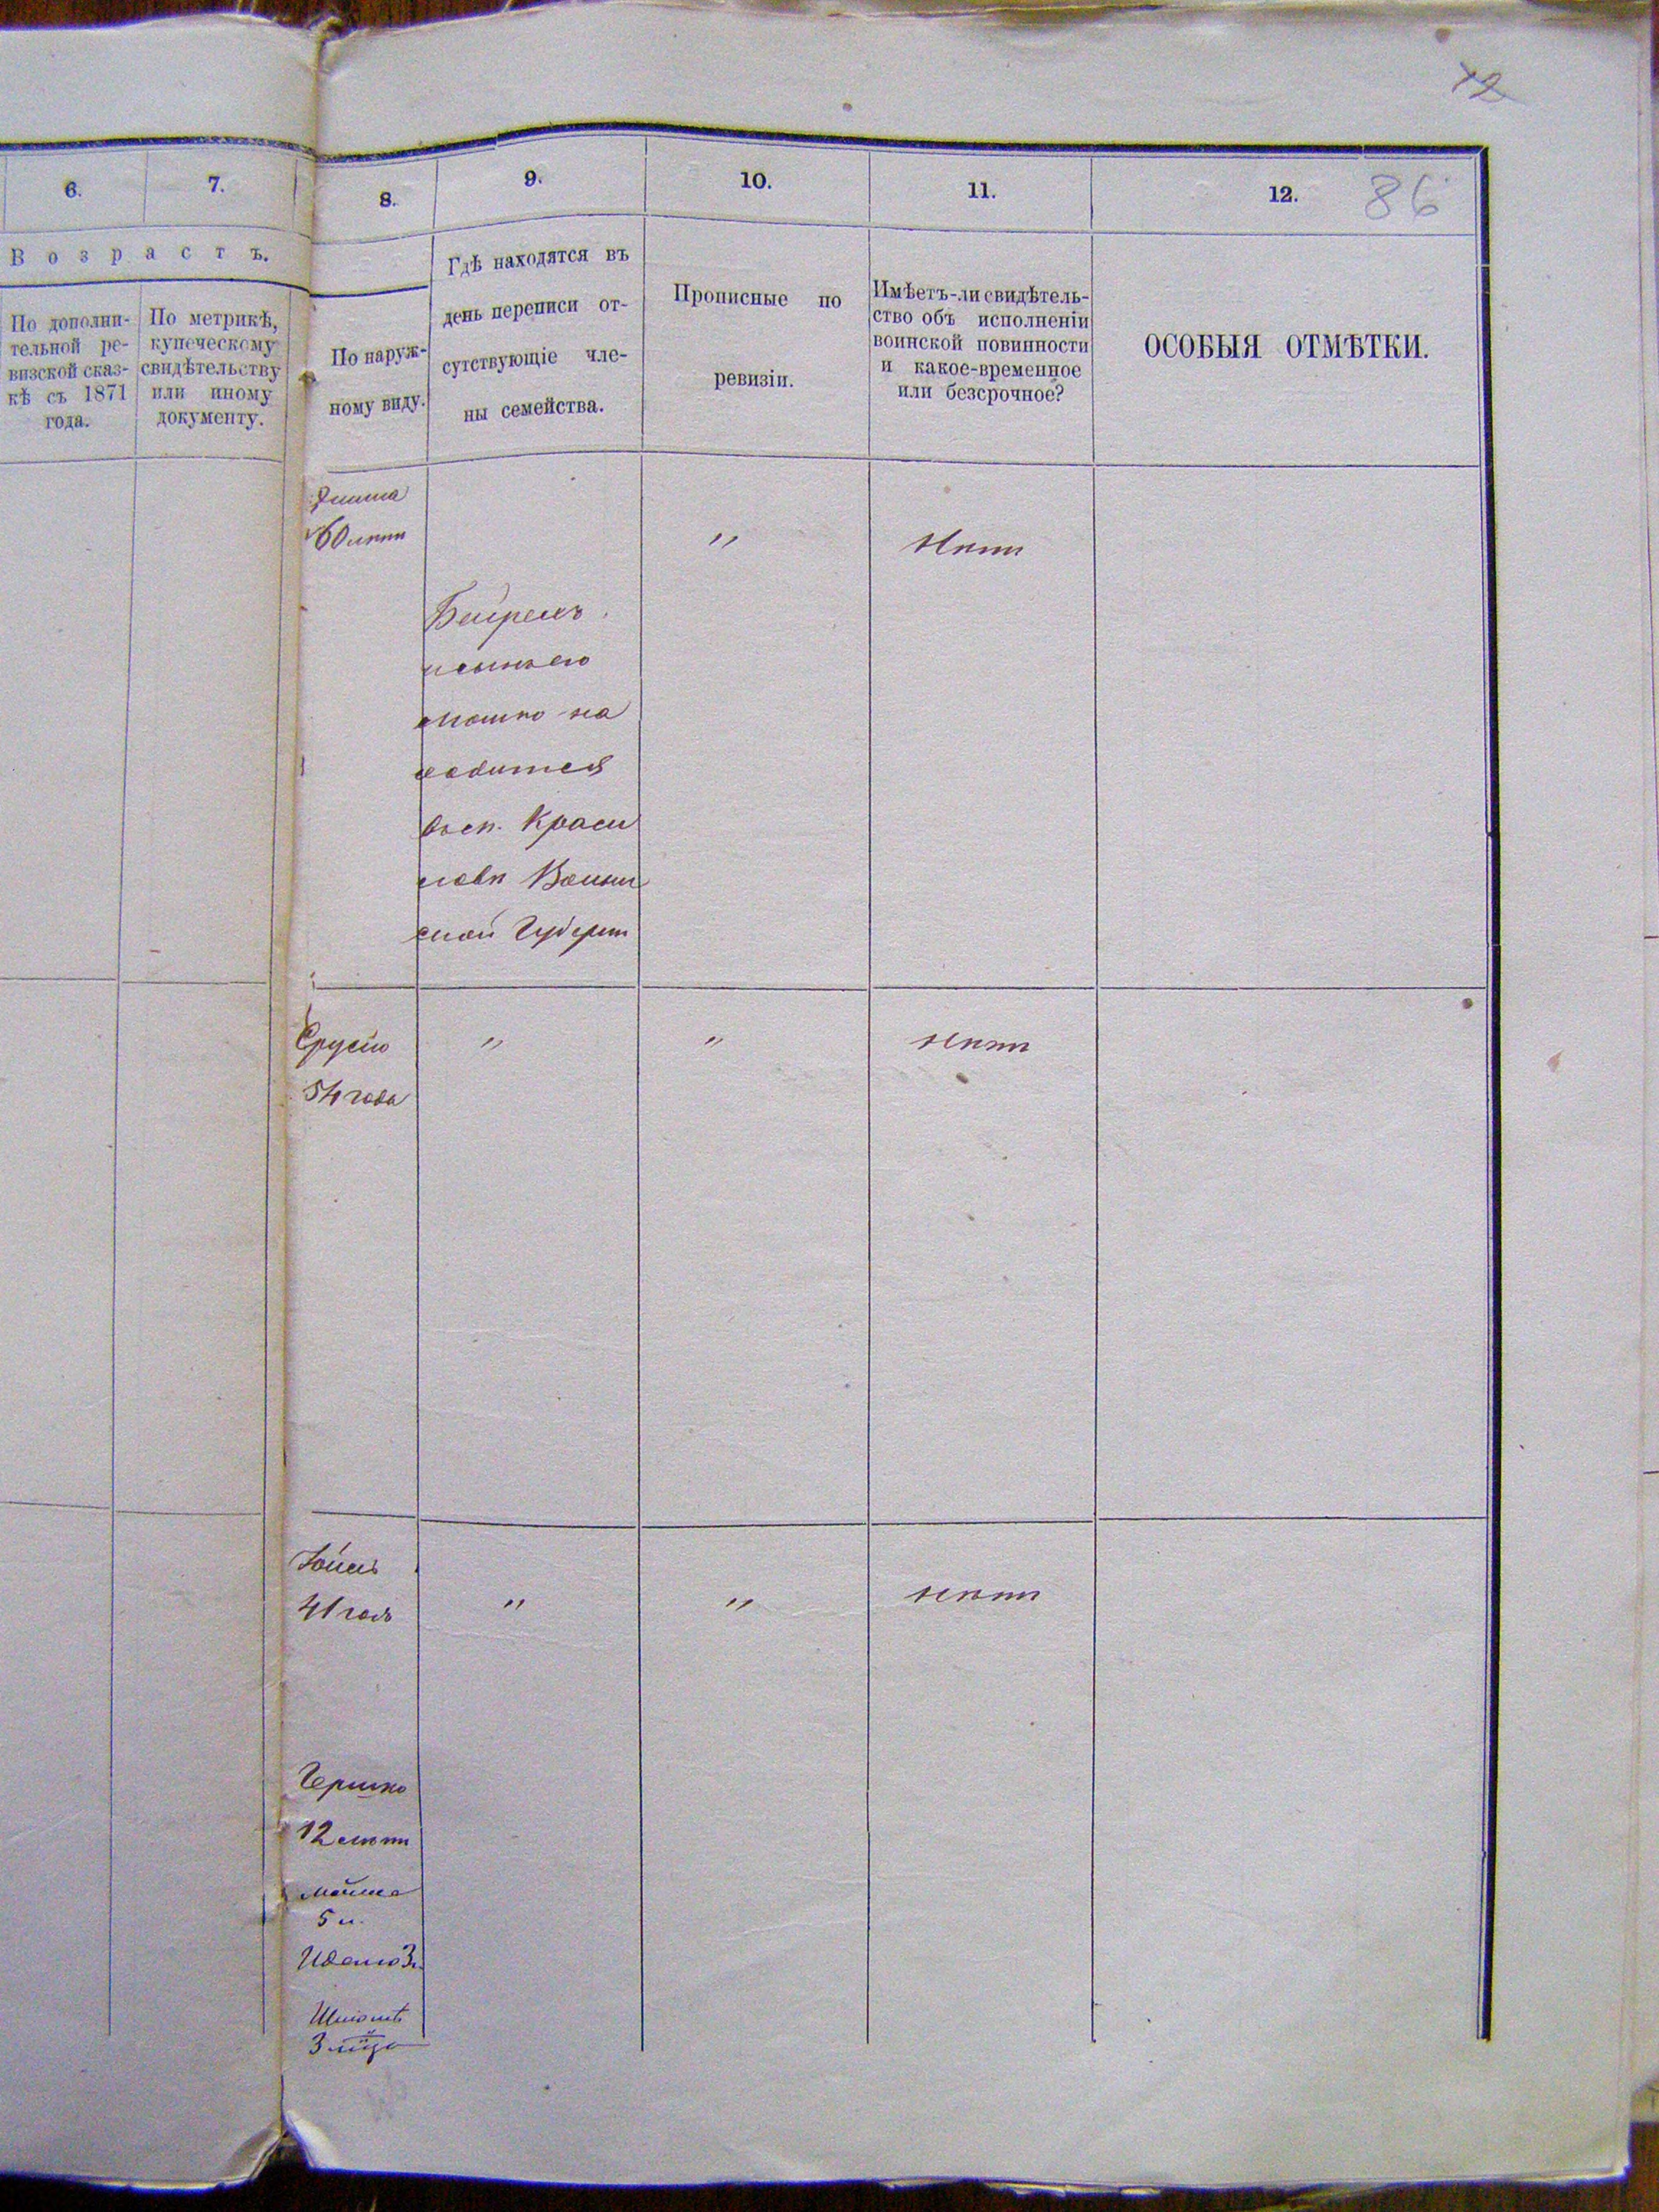 12
6.
7.
8.
9.
10.
11.
12.
86
Возрастъ.
По дополни-
тельной ре-
визской сказ-
кѣ съ 1871
года.
По метрикѣ,
купеческому
свидѣтельству
или иному
документу.
По наруж-
ному виду.
Гдѣ находятся въ
день переписи от-
сутствующіе чле-
ны семейства.
Прописные по
ревизіи.
Имѣетъ-ли свидѣтель-
ство объ исполненіи
воинской повинности
и какое-временное
или безсрочное?
ОСОБЫЯ ОТМѢТКИ.
60 лѣтъ
"
Нѣтъ
Бейрель
и сынъ его
Мошко на
ходится
въ сп. Краси
ловѣ Волын
ской Губерн
Сруль
54 года
"
"
Нѣтъ
41 годъ
"
"
нѣтъ
Гершко
12 лѣтъ
Мойше
5 л.
3 л.
3